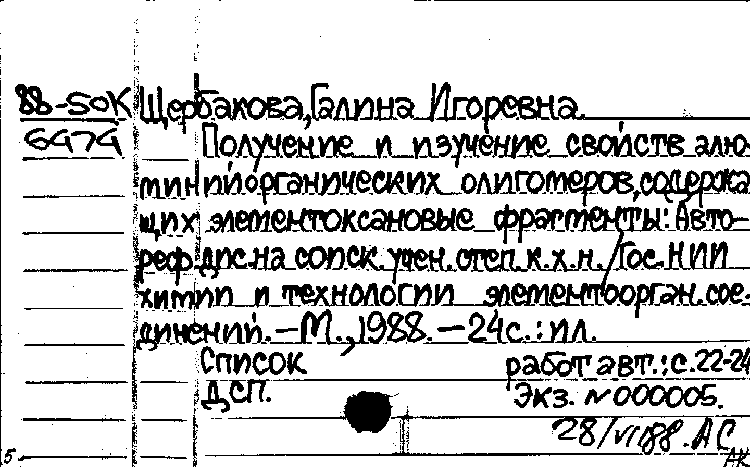 88-50К Щербакова, Галина Игоревна.
6474 Получение и изучение свойств алю-
минийорганических олигомеров, содержа
щих элементоксановые фрагменты: Авто-
реф дис. на соиск. учен. степ. к.х.н. / Гос. НИИ
химии и технологии элементоорган. сое-
динений. — М., 1988. — 24с. : ил.
Список работ авт.: с. 22-24
ДСП. Экз. N 000005.
28/VI 88. АС
5 АК